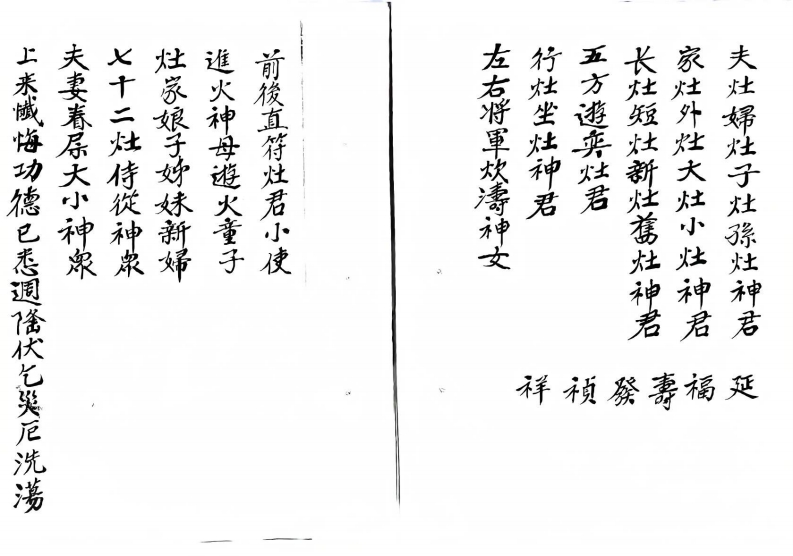 夫灶婦灶子灶孫灶神君
家灶外灶大灶小灶神君
长灶短灶新灶舊灶神君
五方遊奕灶君
行灶坐灶神君
左右将軍炊濤神女
延福壽發禎祥
前後直符灶君小使
進火神母遊火童子
灶家娘子姊妹新婦
七十二灶侍從神眾
夫妻眷属大小神眾
上来懺悔功德已悉週隆伏乞災厄洗蕩